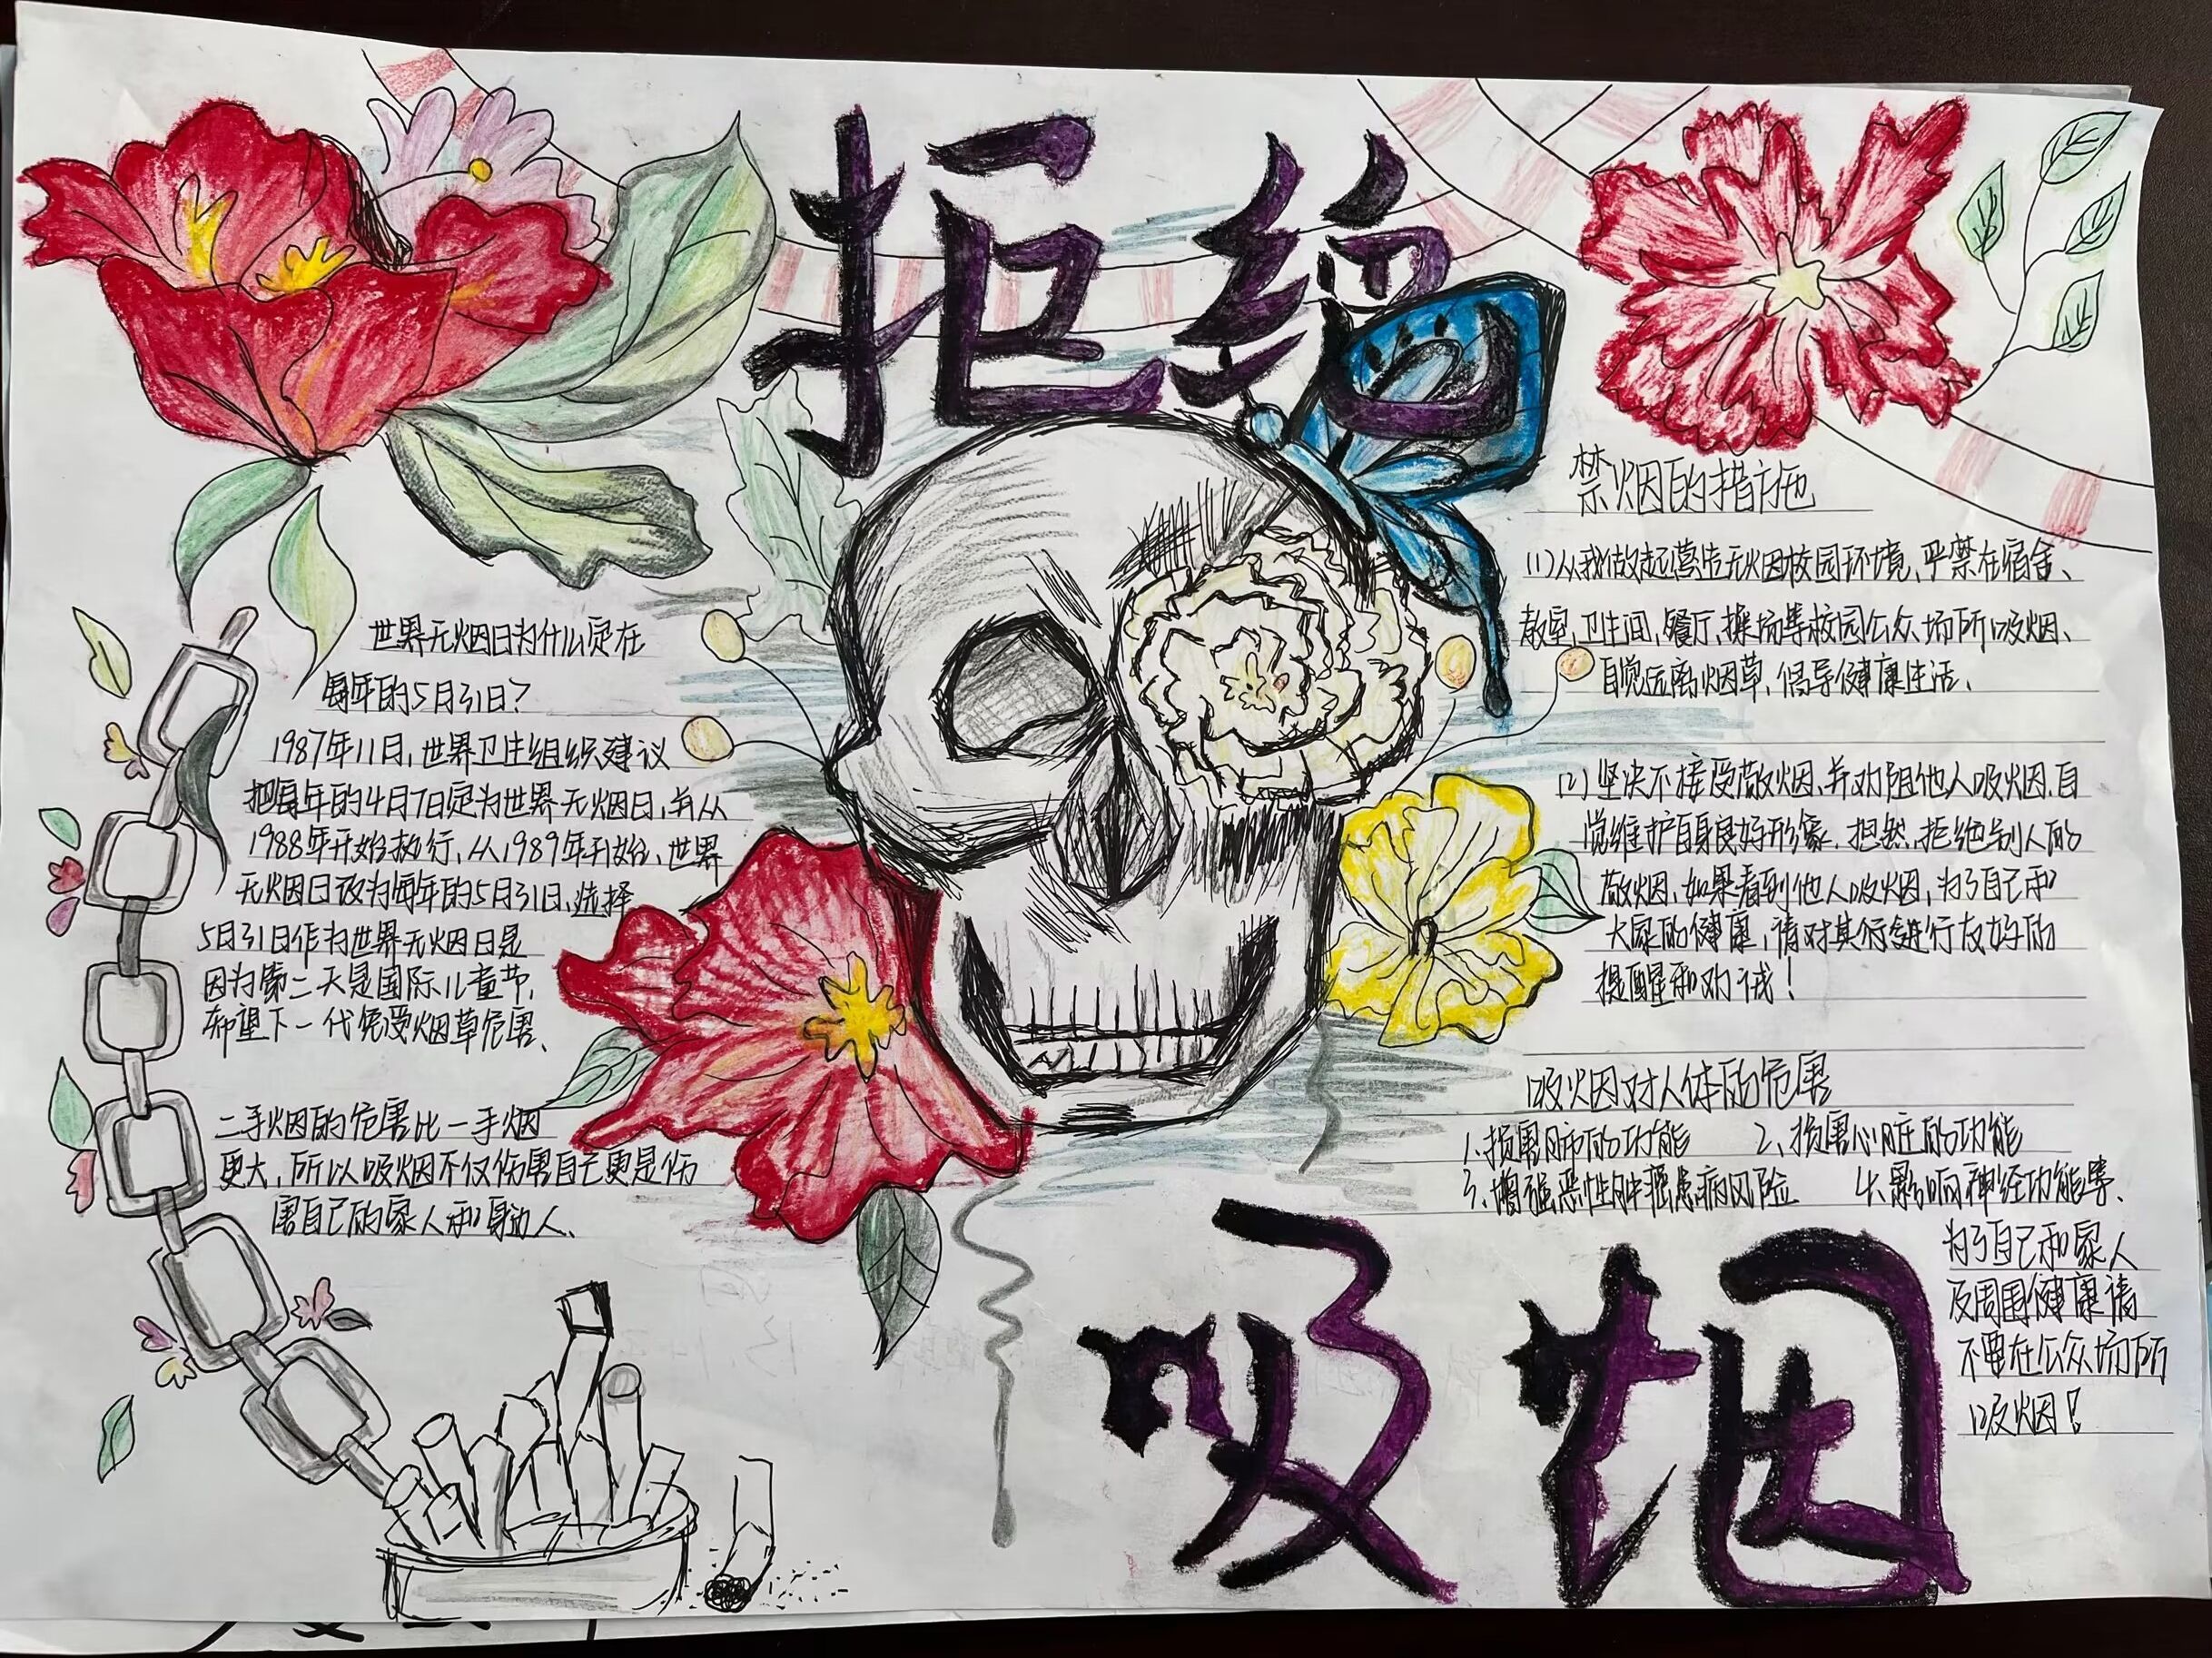 拒绝
世界无烟日为什么定在
每年的5月31日?
1987年11月,世界卫生组织建议
把每年的4月7日定为世界无烟日,并从
1988年开始执行,从1989年开始、世界
无烟日改为每年的5月31日、选择
5月31日作为世界无烟日是
因为第二天是国际儿童节,
希望下一代免受烟草危害、
二手烟的危害比一手烟
更大,所以吸烟不仅伤害自己更是伤
害自己的家人和身边人、
禁烟的措施
(1)从我做起营造无烟校园环境、严禁在宿舍、
教室、卫生间、餐厅、操场等校园公众场所吸烟、
自觉远离烟草,倡导健康生活、
(2)坚决不接受敬烟,并劝阻他人吸烟,自
觉维护自身良好形象,坦然拒绝别人的
敬烟,如果看到他人吸烟,为了自己和
大家的健康,请对其行为进行友好的
提醒和劝诫!
吸烟对人体的危害
1、损害肺的功能 2、损害心脏的功能
3、增强恶性肿瘤患病风险 4、影响神经功能等、
为了自己和家人
及周围健康请
不要在公众场所
吸烟!
吸烟